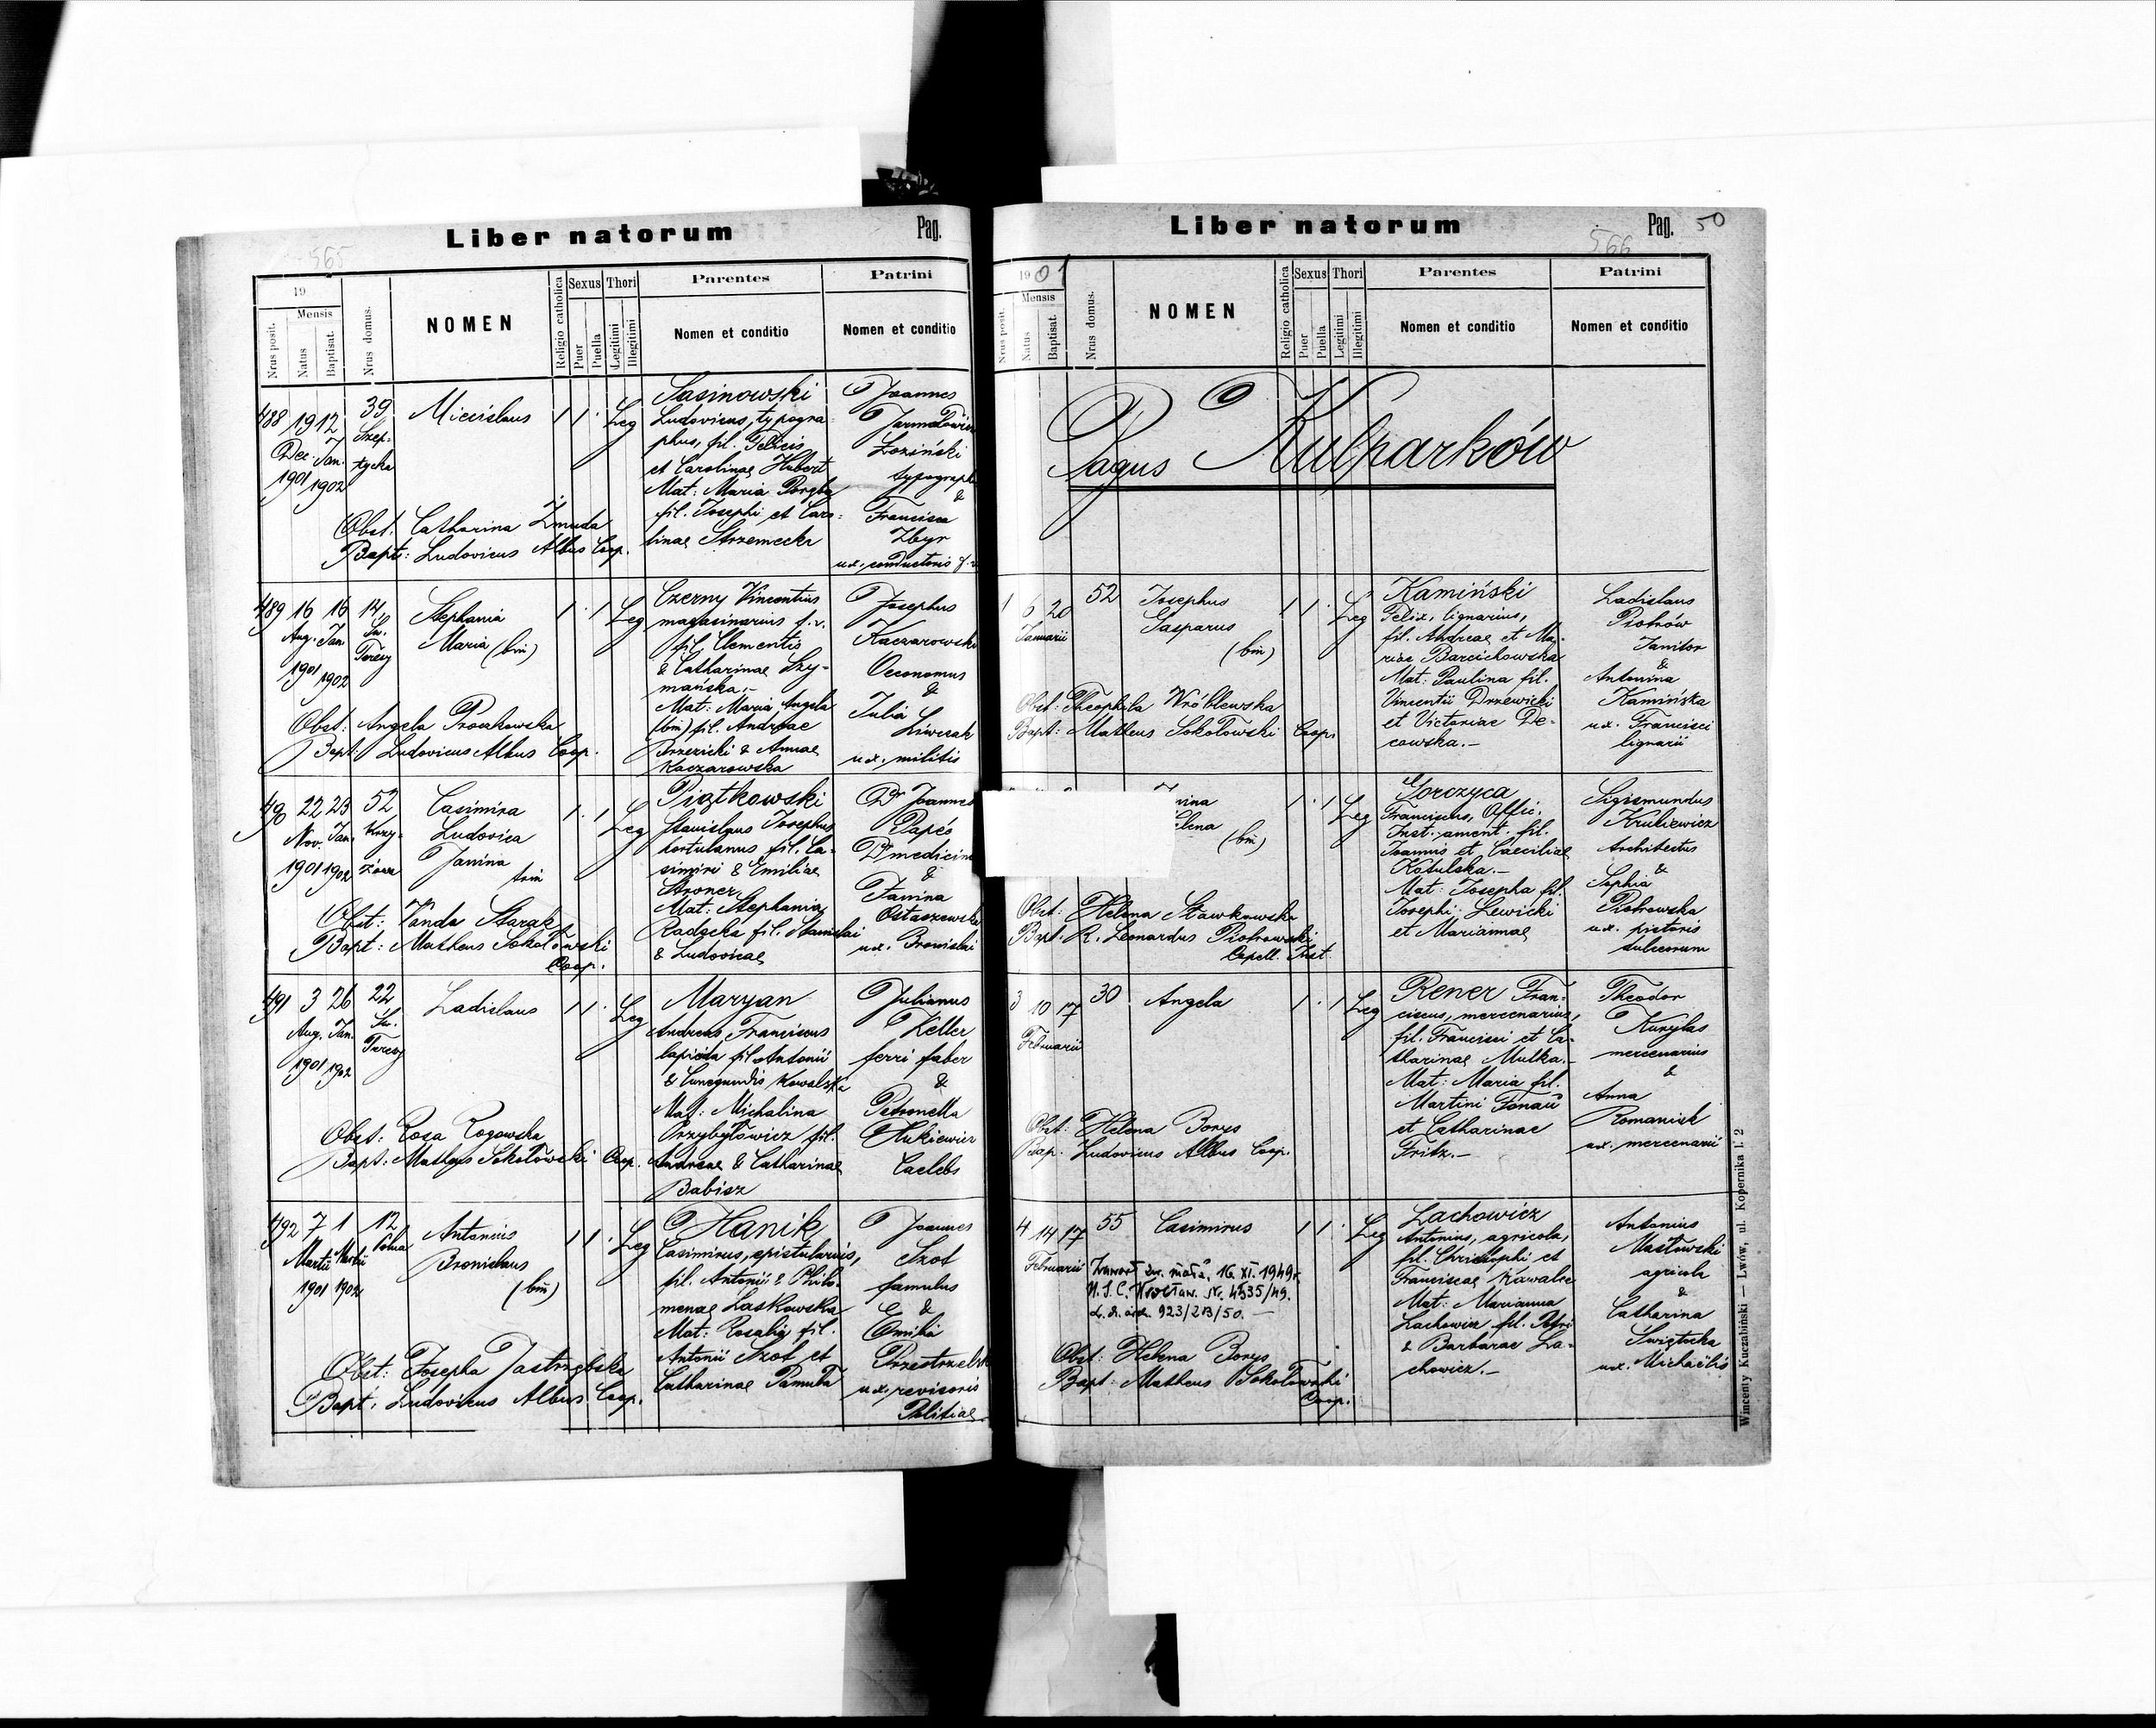 Liber natorum Pag.
565
19
Mensis
Nrus posit.
Natus
Baptisat.
Nrus domus.
NOMEN
Religio catholica
Sexus
Puer
Puella
Thori
Legitimi
Illegitimi
Parentes
Nomen et conditio
Patrini
Nomen et conditio
488 19 12 39
Dec. Jan. Szep-
1901 1902 tycka
Miecislaus
1 1 Leg
Sasinowski
Ludovicus, typogra-
phus, fil. Felicis
et Carolinae Hubert
Mat: Maria Poręba
fil. Josephi et Caro-
linae Strzemecki
Joannes
Łoziński
typograph
&
Francisca
Zbyr
ux. conductoris
Obst. Catharina Żmuda
Bapt: Ludovicus Albus Coop.
489 16 16 14
Aug. Jan Św.
1901 1902 Teresy
Stephania
Maria (bin)
1 1 Leg
Czerny Vincentius
magasinarius f. v.
fil. Clementis
& Catharinae Szy-
mańska.-
Mat: Maria Angela
(bin) fil. Andreae
Brzezicki & Annae
Kaczarowska
Josephus
Kaczarowski
Oeconomus
&
Julia
Liwczak
ux. militis
Obst: Angela
Bapt: Ludovicus Albus Coop.
490 22 23 52
Nov. Jan. Krzy-
1901 1902 żowa
Casimira
Ludovica
Janina
trin
1 1 Leg
Piątkowski
Stanislaus Josephus
hortulanus fil. Ca-
simiri & Emiliae
Stroner
Mat: Stephania
Radecka fil. Stanislai
& Ludovicae
Dr Joannes
Papée
Dr medicin
&
Janina
Ostaszewska
ux. Bronislai
Obst: Vanda Starak
Bapt: Matheus Sokołowski
Coop.
491 3 26 22
Aug. Jan. Św.
1901 1902 Teresy
Ladislaus
1 1 Leg
Maryan
Andreas Franciscus
lapicida fil. Antonii
& Cunegundis Kowalska
Mat: Michalina
Przybyłowicz fil.
Andreae & Catharinae
Babisz
Julianus
Keller
ferri faber
&
Petronella
Hukiewicz
Caelebs
Obst: Rosa Rogowska
Bapt: Matheus Sokołowski Coop.
492 7 1 12
Martii Martii Polna
1901 1902
Antonius
Bronislaus
(bin)
1 1 Leg
Hanik
Casimirus, epistularius,
fil. Antonii & Philo-
menae Laskowska
Mat: Rosalia fil.
Antonii Szot et
Catharinae Pamuła
Joannes
Szot
famulus
&
Emilia
ux. revisoris
Politiae
Obst: Josepha Jastrzębska
Bapt: Ludovicus Albus Coop.
Liber natorum Pag. 50
566
1901
Mensis
Nrus posit.
Natus
Baptisat.
Nrus domus.
NOMEN
Religio catholica
Sexus
Puer
Puella
Thori
Legitimi
Illegitimi
Parentes
Nomen et conditio
Patrini
Nomen et conditio
Pagus Kulparków
1 6 20 52
Januarii
Josephus
Gasparus
(bin)
1 1 Leg
Kamiński
Felix, lignarius,
fil. Andreae et Ma-
riae Barcichowska
Mat: Paulina fil.
Vincentii Drzewicki
et Victoriae De-
cowska.-
Ladislaus
Piotrów
Janitor
&
Antonina
Kamińska
ux. Francisci
lignarii
Obst: Theophila Wróblewska
Bapt: Matheus Sokołowski Coop.
(bin)
1 1 Leg
Gorczyca
Franciscus, Offic.
Inst. ament. fil.
Joannis et Caeciliae
Kobulska.-
Mat: Josepha fil.
Josephi Lewicki
et Mariannae
Sigismundus
Krukiewicz
Architectus
&
Sophia
Piotrowska
ux. pistoris
dulcorum
Obst: Helena Sławkowska
Bapt. R. Leonardus Piotrowski
Capell. Inst.
3 10 17 30
Februarii
Angela
1 1 Leg
Rener Fran-
ciscus, mercenarius,
fil. Francisci et Ca-
tharinae Mulka.-
Mat: Maria fil.
Martini Fonau
et Catharinae
Fritz.-
Theodor
Kurylas
mercenarius
&
Anna
Romaniuk
ux. mercenarii
Obst: Helena Borys
Bap. Ludovicus Albus Coop.
4 14 17 55
Februarii
Casimirus
1 1 Leg
Zawarł zw. małż. 16. XI. 1949 r.
U.S.C. Wrocław. Nr. 4535/49.
923/213/50.
Lachowicz
Antonius, agricola,
fil. Christophi et
Franciscae Kawalec
Mat: Marianna
Lachowicz fil. Petri
& Barbarae La-
chowicz.-
Antonius
Masłowski
agricola
&
Catharina
Świętocka
ux. Michaëlis
Obst: Helena Borys
Bapt: Matheus Sokołowski
Coop.
Wincenty Kuczabiński — Lwów, ul. Kopernika l. 2